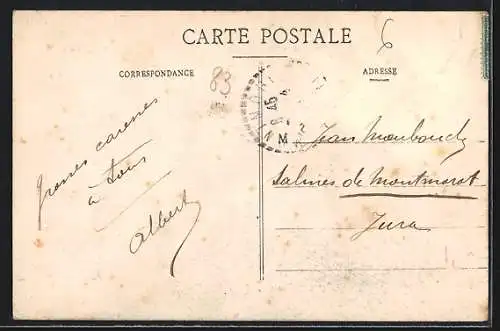 CARTE POSTALE
6
CORRESPONDANCE
83
ADRESSE
Grosses caresses
à tous
Albert
Jean
Salines de Montmorot
Jura